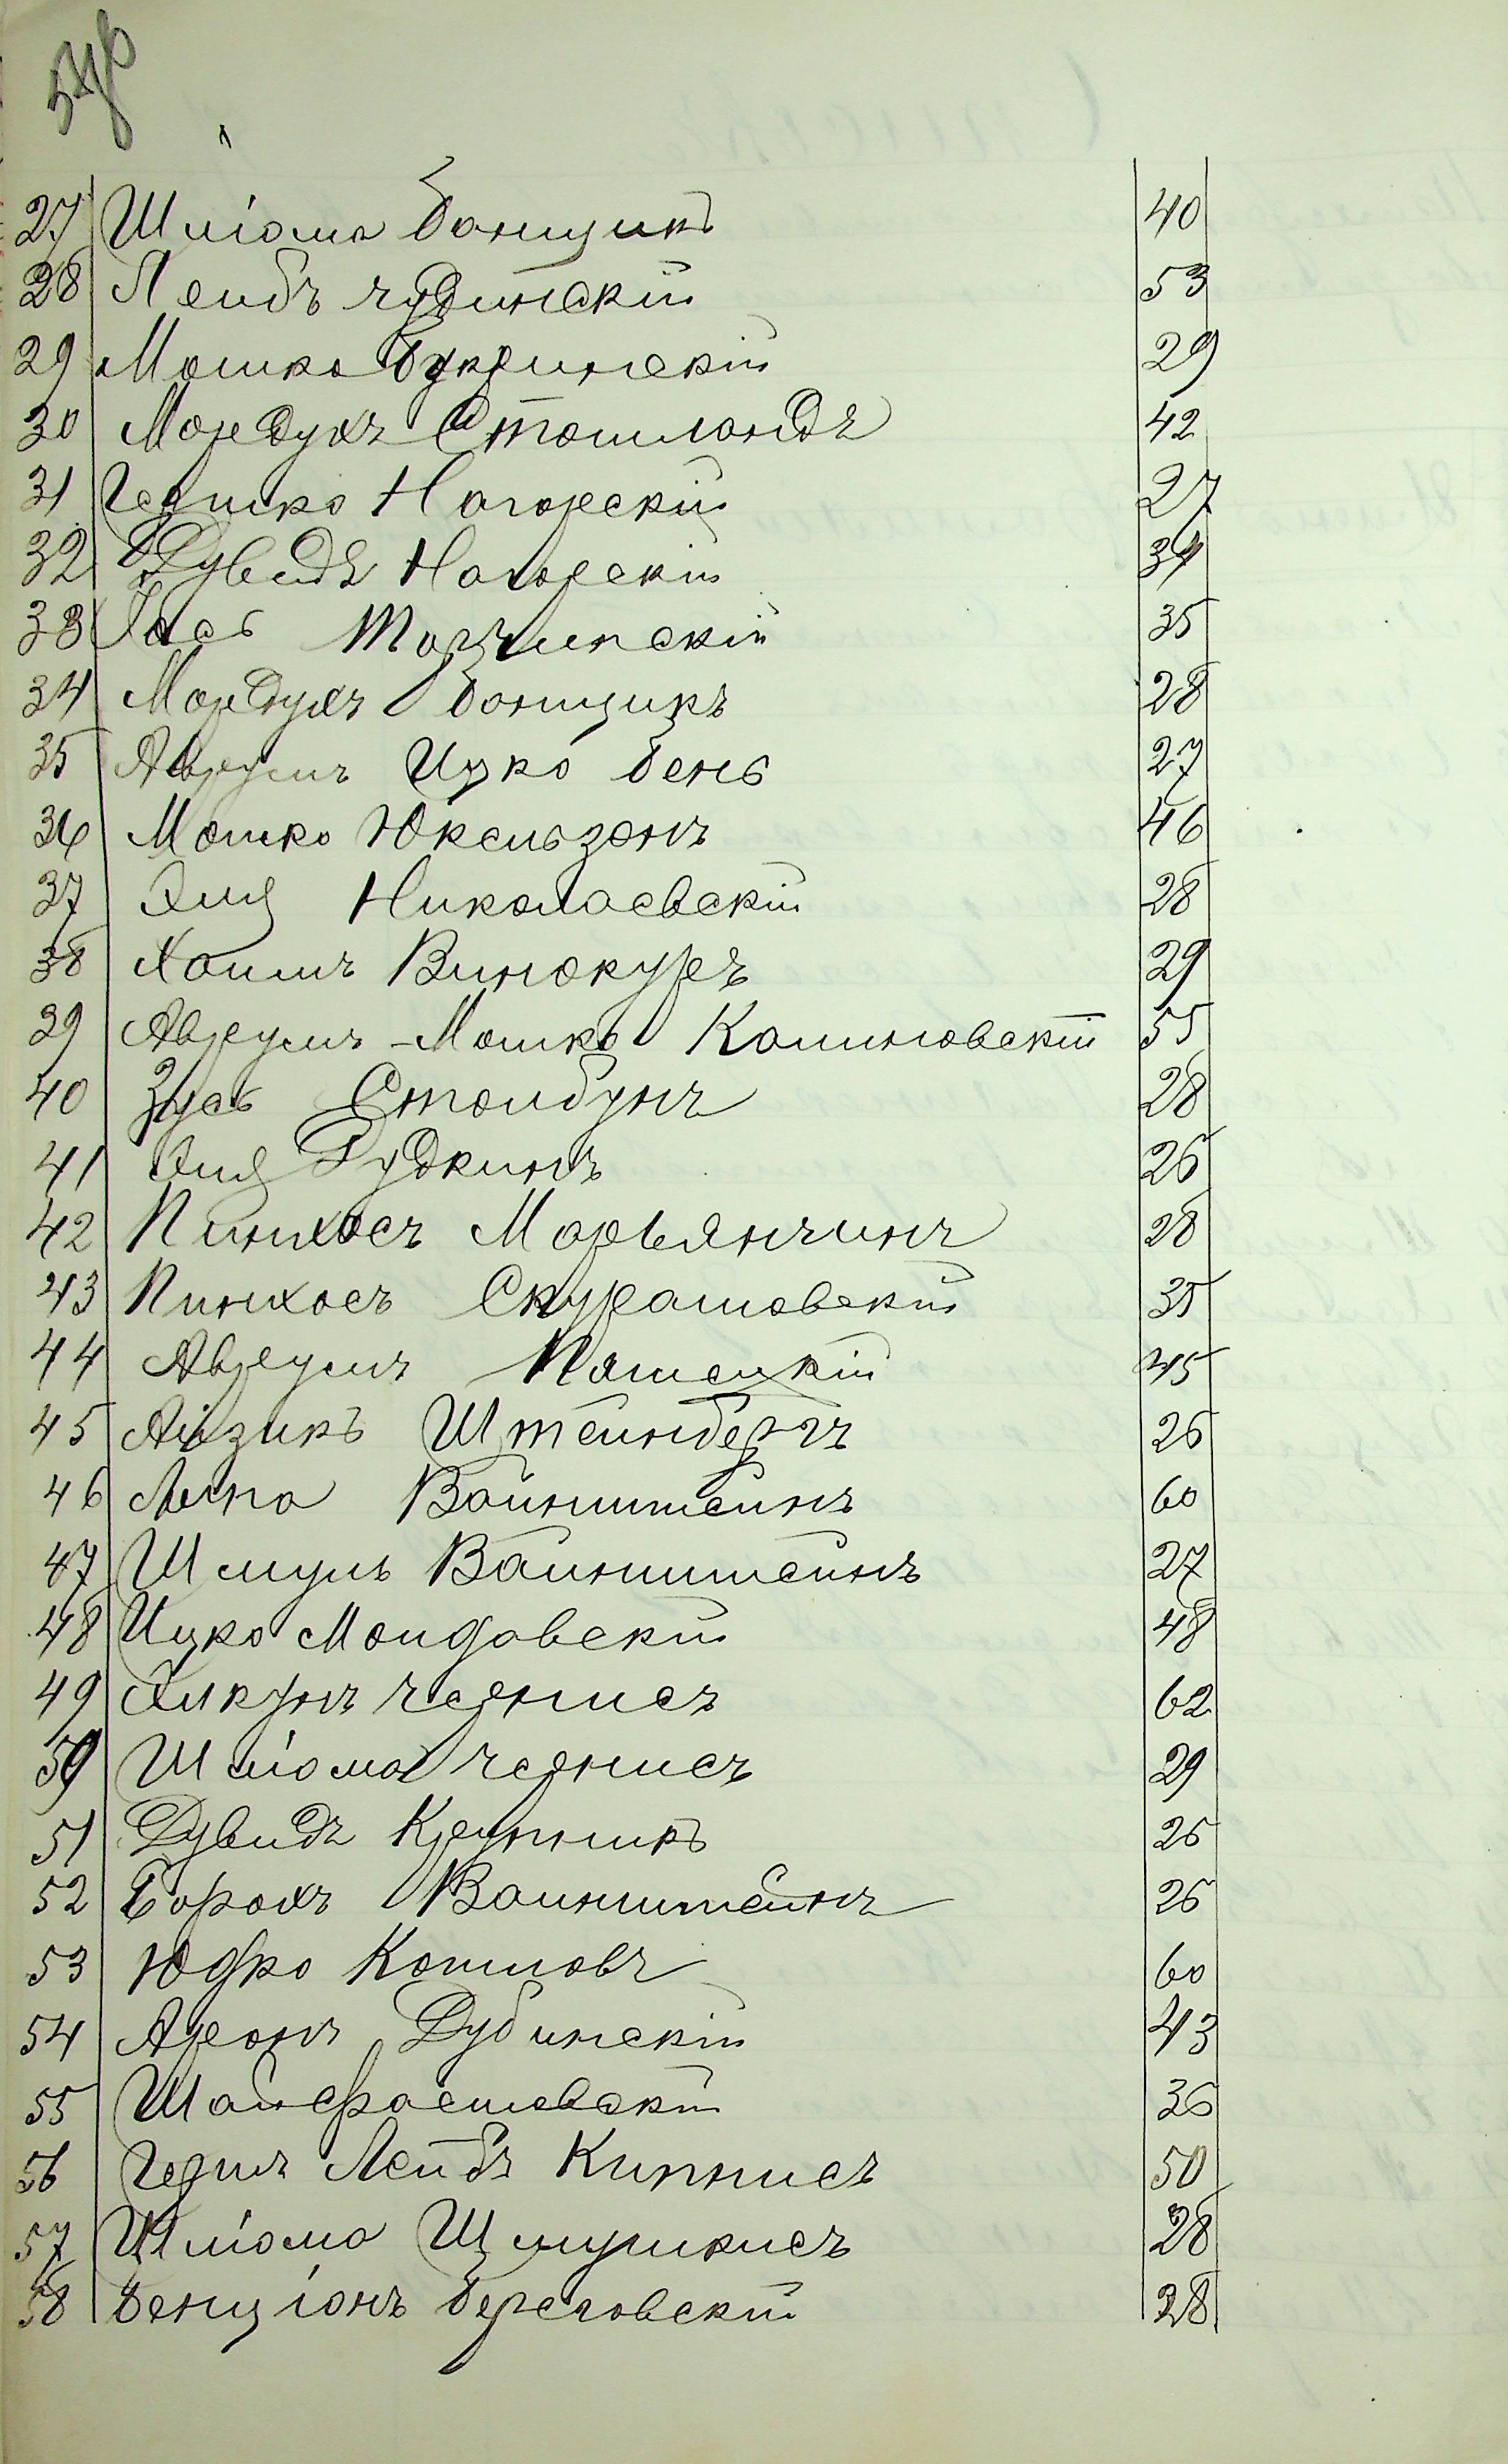 27 Шліома Бонщикъ 40
28 Леибъ Чудинскій 53
29 Мошко Букринскій 29
30 Мордухъ 42
31 Гершко Нагорскій 27
32 Дувидъ Нагорскій 34
33 35
34 Мордухъ Бонщикъ 28
35 Аврумъ Ицко Бень 27
36 Мошко Юкельзонъ 46
37 Эля Николаевскій 28
38 Хаимъ Винокуръ 29
39 Аврумъ-Мошко Калиновскій 55
40 Зусь Столбунъ 28
41 Эля Рудкинъ 26
42 Пинхосъ Марьянчикъ 28
43 Пинхосъ Скуратовскій 35
44 Аврумъ 45
45 Айзикъ Штейнбергъ 26
46 Вайнштейнъ 60
47 Шмуль Вайнштейнъ 27
48 Ицко Молдавскій 48
49 Элкунъ Чернисъ 62
50 Шліома Чернисъ 29
51 Дувидъ Крупникъ 26
52 Борохъ Вайнштейнъ 26
53 Юдко Котловъ 60
54 Аронъ Дубинскій 43
55 36
56 Гершъ Лейбъ Кипнисъ 50
57 Шліома Шмушкисъ 28
58 Бенціонъ Береговскій 28